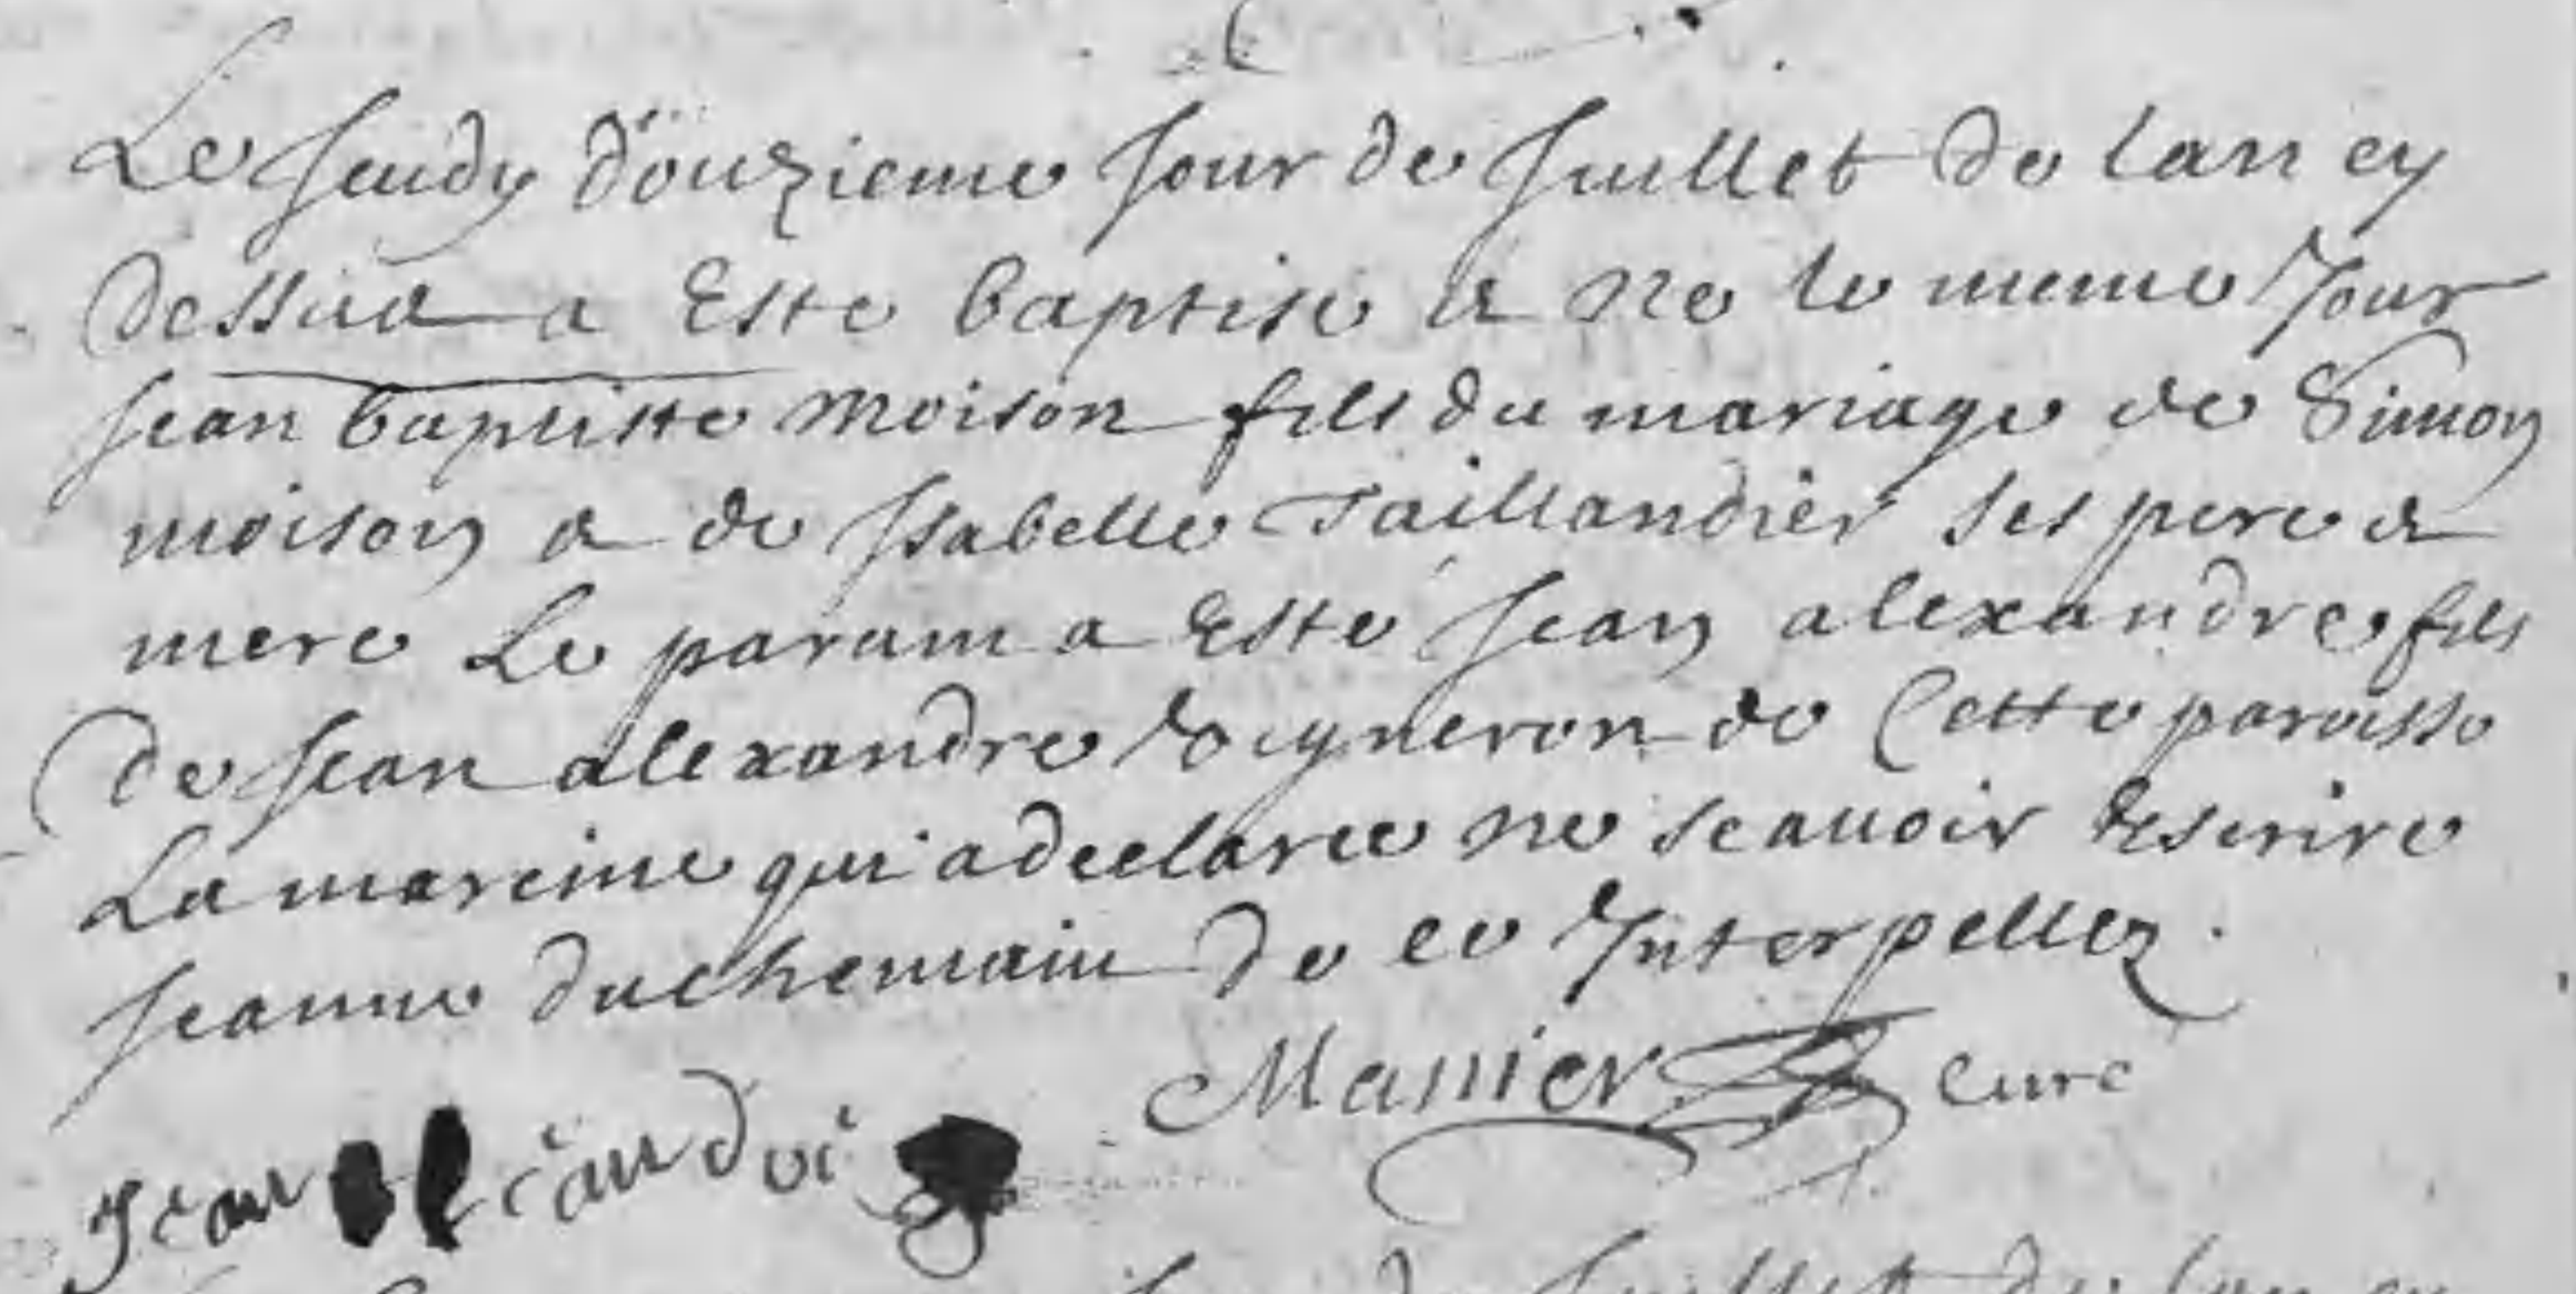 Le Jeudy douzieme Jour de Juillet de lan cy
dessus a Este baptise & ne le meme Jour
Jean baptiste moison fils du mariage de Simon
moison & de Isabelle Taillandier ses pere &
mere Le parain a Esté Jean alexandre fils
de Jean alexandre vigneron de Cette paroisse
La mareine qui a declaree ne scauoir Escrire
Jeanne duchemain de ce Interpellez.
Manier Curé
Jean
Juillet de lan cy